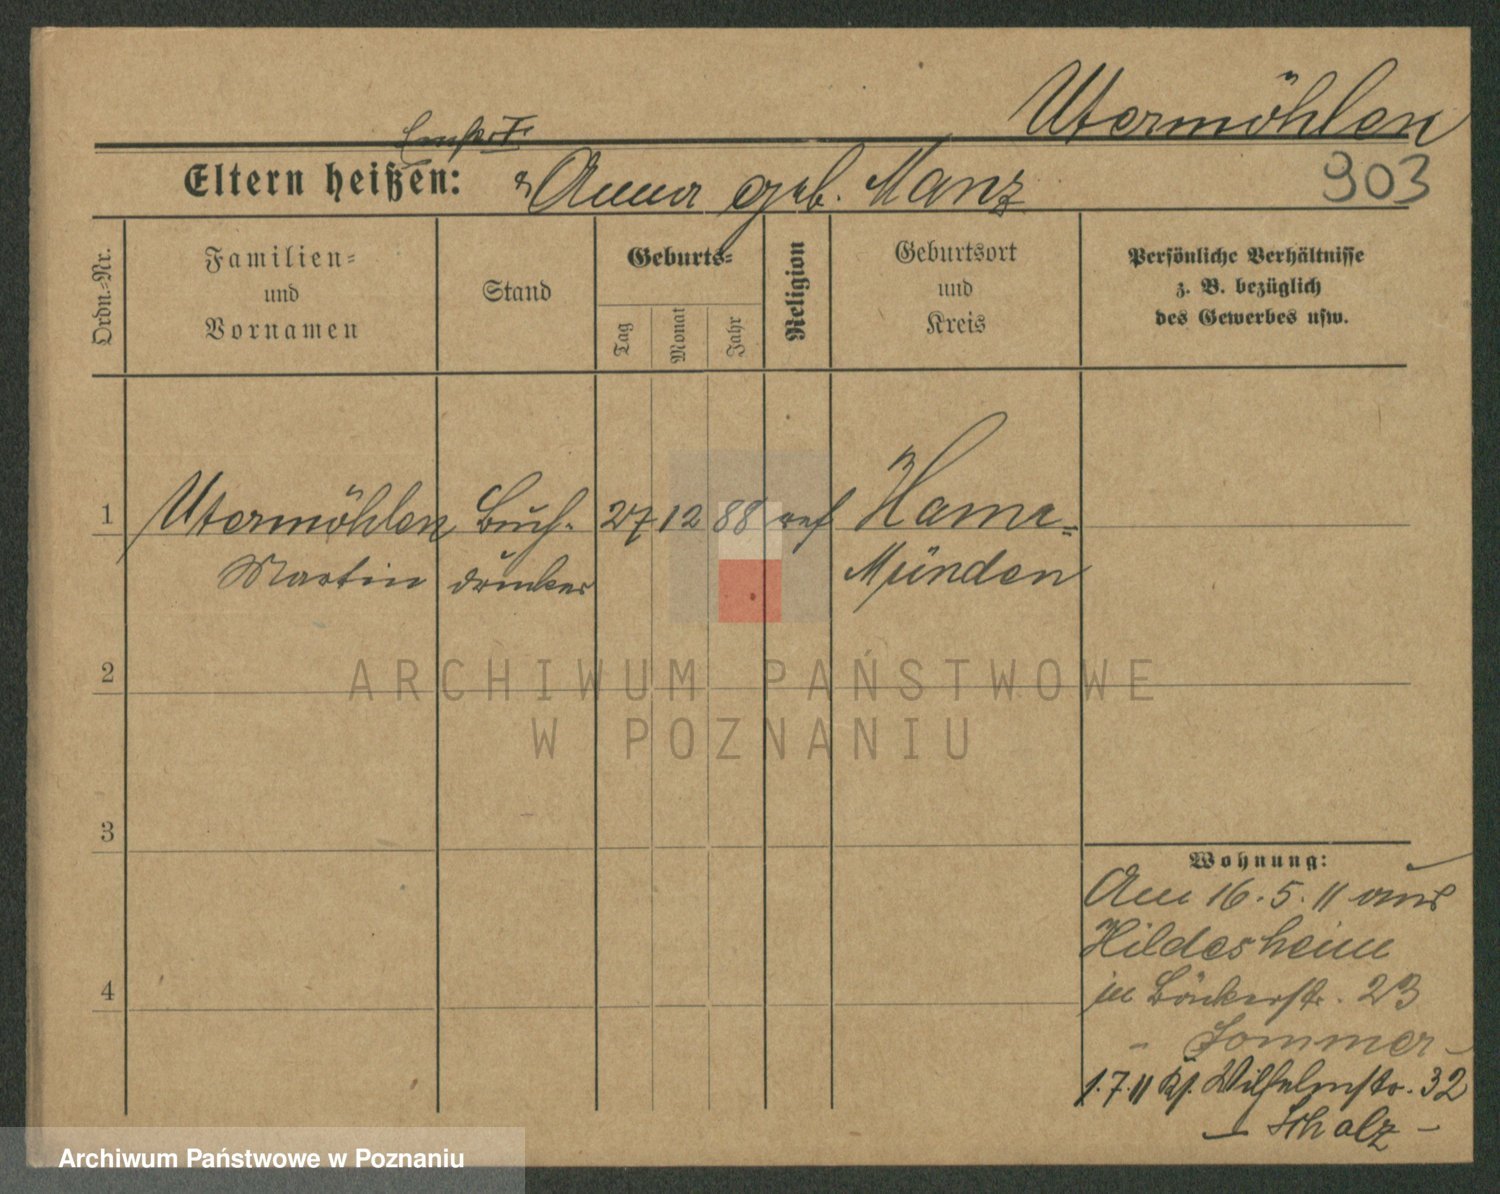 Utermöhlen
903
Eltern heißen:
Anna geb. Manz
Ordn.-Nr.
Familien-
und
Vornamen
Stand
Geburts-
Tag
Monat
Jahr
Religion
Geburtsort
und
Kreis
Persönliche Verhältnisse
z. B. bezüglich
des Gewerbes usw.
1 Utermöhlen Buch- 27 12 88 ref Hann-
Martin drucker Münden
2
3
4
Wohnung:
Am 16.5.11 aus
Hildesheim
in Bäckerstr. 23
- Sommer -
1.7.11 Wilhelmstr. 32
- Scholz -
ARCHIWUM PAŃSTWOWE
W POZNANIU
Archiwum Państwowe w Poznaniu